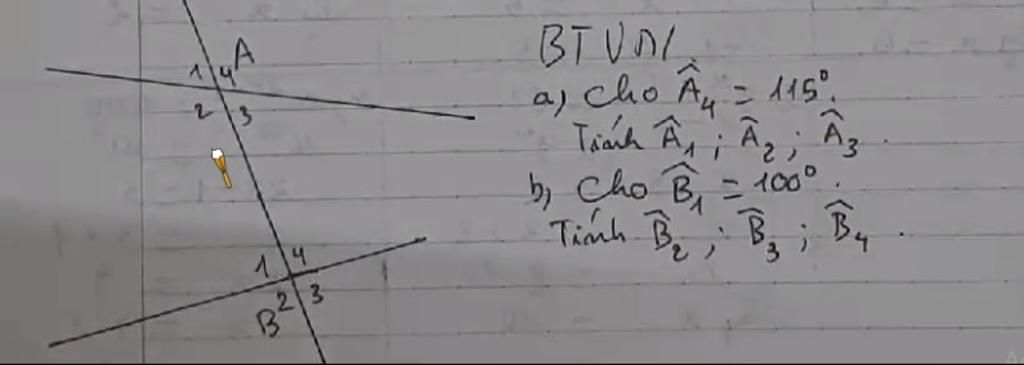 A
1 4
2 3
1 4
2 3
B
BTVN
a) Cho Â₄ = 115°.
Tính Â₁ ; Â₂ ; Â₃ .
b) Cho B̂₁ = 100° .
Tính B̂₂ ; B̂₃ ; B̂₄ .